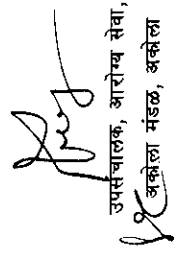 उपसंचालक, आरोग्य सेवा,
अकोला मंडळ, अकोला